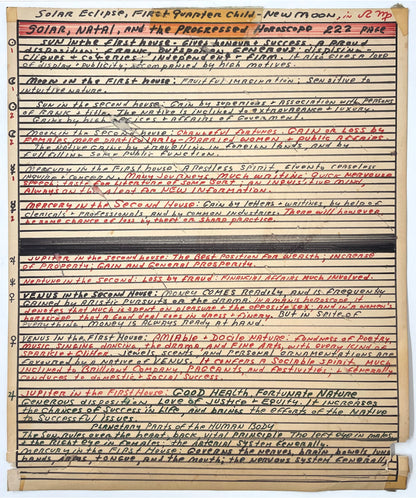 Solar Eclipse, First Quarter Child - New Moon, in
SOLAR, NATAL, and the Progressed Horoscope 222 PAGE
SUN in the First house: Gives honour + Success, A Proud
disposition; FRANK, Outspoken, Generous: dispising
Cliques + Coteries: Independent + Firm. It also gives a love
of display + Publicity accompanied by high motives.
Moon in the First house: Fruitful imagination; Sensitive to
intuitive nature.
Sun in the second house: Gain by superiors + Association with PERSONS
of RANK + title. The Native is inclined to extravagance + luxury.
Gains by high affairs of Government.
Moon in the Second house: Changeful fortunes. GAIN or Loss by
Females, more particularly - Married Women + Public Affairs.
The Native Gains by travelling in foreign lands, and by
Fulfilling Some Public Function.
Mercury in the First house: A Restless Spirit, Every ready
inquire + Concern. Many Journeys, Much Writing; Quick Nervous
Speech; taste for Literature of some Sort; An inquisitive mind,
Always on the alert for NEW INFORMATION.
Mercury in the Second House: Gain by letters + writings, by help of
clericals + Professionals and by common Industries. There will however
be some chance of loss by theft or sharp practice.
Jupiter in the second house: The Best Position for Wealth; increase
of Property; Gain and General Prosperity.
Neptune in the Second: Loss by fraud. Financial Affairs much involved.
VENUS in the Second House: Money COMES Readily, and is frequently
Gained by Artistic Pursuits or the drama. In a mans horoscope it
denotes that much is spent on pleasure + the opposite sex; and in a women's
horoscope that a Good deal goes on dress + Finery. But in Spite of
everything, Money is Always Ready at hand.
Venus in the First house: Amiable + Docile Nature: Fondness of Poetry,
Music, Singing, dancing, the drama, and Fine Arts, with every kind of
Sparkle + Glitter. Jewels, Scents, and Personal ornamentations are
Favoured by a Native of VENUS. It confers a Sociable Spirit, much
inclined to Brilliant Company, Pageants and Festivities, + Generally
conduces to domestic + Social Success.
Jupiter in the First House: Good Health, Fortunate Nature
Generous disposition. Love of Justice. It increases
the Chances of Success in Life, and brings the efforts of the Native
to Successful Issues.
Planetary Parts of the HUMAN BODY
The Sun rules over the heart, back, vital principle, the left eye in males
the Right eye in Females; the Arterial System Generally.
Mercury in the First House: Governs the nerves, brain, bowels, lungs
hands, arms, tongue, and the mouth; the nervous system Generally